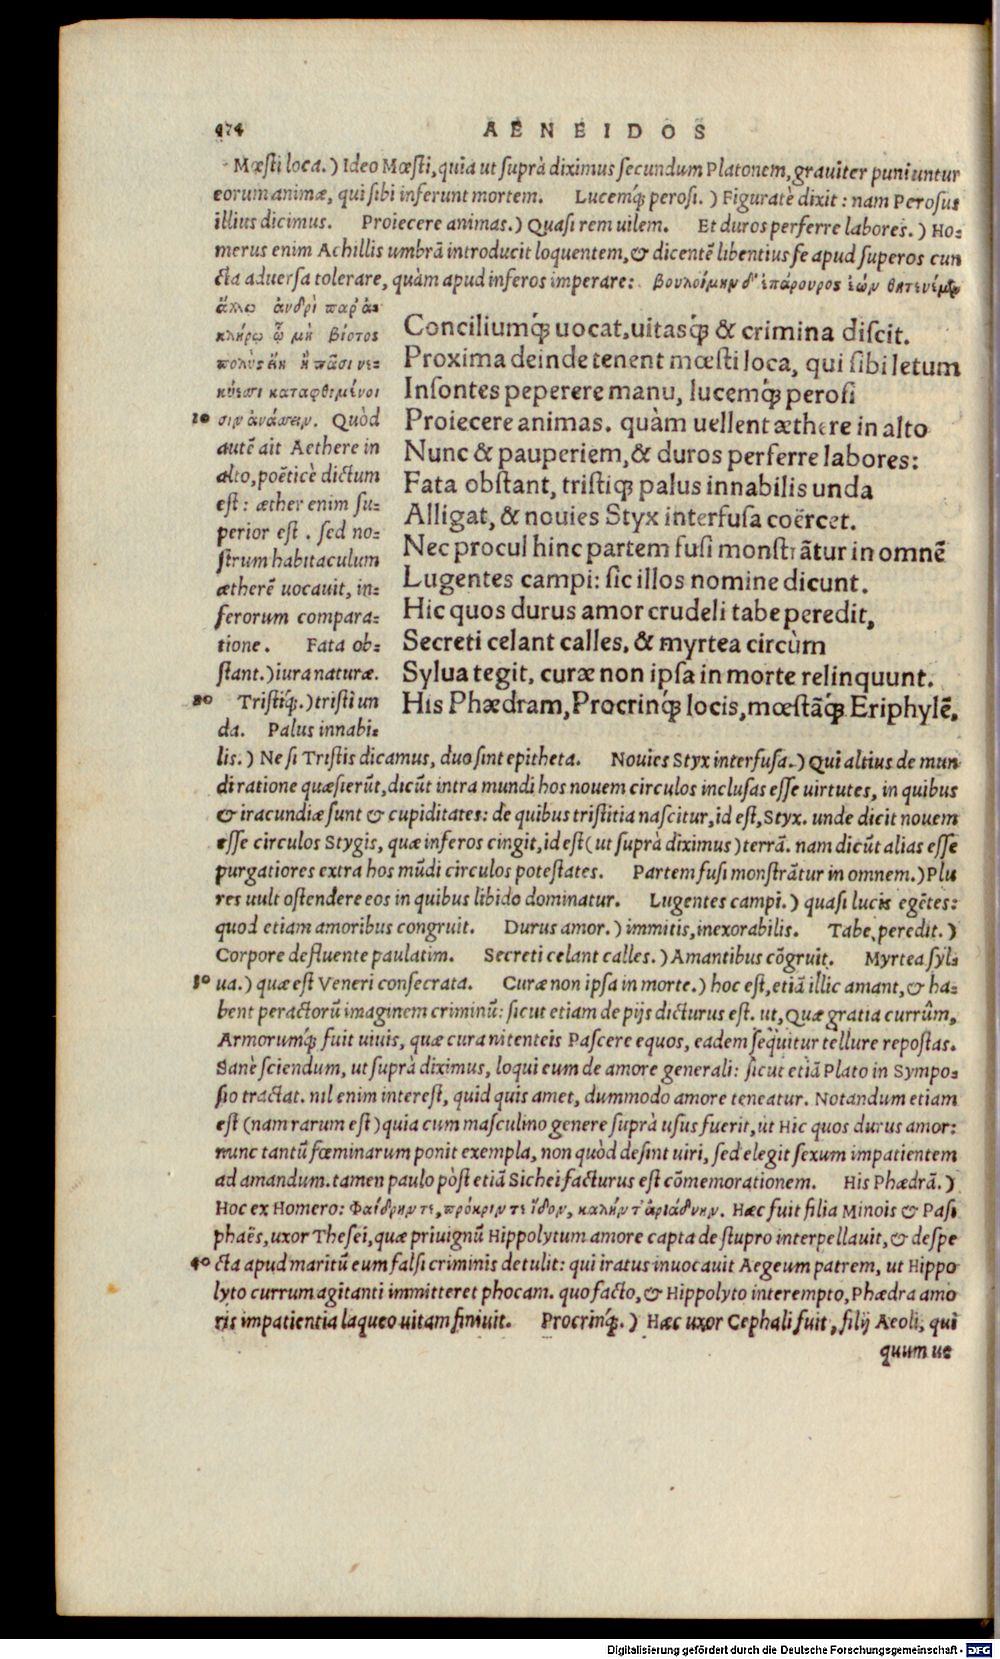 474
AENEIDOS
Mœsti loca.) Ideo Mœsti, quia ut suprà diximus secundum Platonem, grauiter puniuntur
eorum animæ, qui sibi inferunt mortem. Lucemq́; perosi.) Figuratè dixit: nam Perosus
illius dicimus. Proiecere animas.) Quasi rem uilem. Et duros perferre labores.) Ho-
merus enim Achillis umbrā introducit loquentem, & dicentē libentius se apud superos cun
cta aduersa tolerare, quàm apud inferos imperare: βουλοίμην δ' ἐπάρουρος ἐὼν θητευέμεν
ἄλλῳ ἀνδρὶ παρ' ἀ-
κλήρῳ ᾧ μὴ βίοτος
πολὺς ἢ πᾶσι νε-
κύεσσι καταφθιμένοι
10 σιν ἀνάσσειν. Quòd
autē ait Aethere in
alto, poëticè dictum
est: æther enim su-
perior est. sed no-
strum habitaculum
ætherē uocauit, in-
ferorum compara-
tione. Fata ob-
stant.) iura naturæ.
20 Tristiq́;.) tristi un
da. Palus innabi-
Conciliumq́; uocat, uitasq́; & crimina discit.
Proxima deinde tenent mœsti loca, qui sibi letum
Insontes peperere manu, lucemq́; perosi
Proiecere animas. quàm uellent æthere in alto
Nunc & pauperiem, & duros perferre labores:
Fata obstant, tristiq; palus innabilis unda
Alligat, & nouies Styx interfusa coërcet.
Nec procul hinc partem fusi monstrātur in omnē
Lugentes campi: sic illos nomine dicunt.
Hic quos durus amor crudeli tabe peredit,
Secreti celant calles, & myrtea circùm
Sylua tegit, curæ non ipsa in morte relinquunt.
His Phædram, Procrinq́; locis, mœstāq́; Eriphylē,
lis.) Ne si Tristis dicamus, duo sint epitheta. Nouies Styx interfusa.) Qui altius de mun
di ratione quæsierūt, dicūt intra mundi hos nouem circulos inclusas esse uirtutes, in quibus
& iracundiæ sunt & cupiditates: de quibus tristitia nascitur, id est, Styx. unde dicit nouem
esse circulos Stygis, quæ inferos cingit, id est (ut suprà diximus) terrā. nam dicūt alias esse
purgatiores extra hos mūdi circulos potestates. Partem fusi monstrātur in omnem.) Plu
res uult ostendere eos in quibus libido dominatur. Lugentes campi.) quasi lucis egētes:
quod etiam amoribus congruit. Durus amor.) immitis, inexorabilis. Tabe peredit.)
Corpore defluente paulatim. Secreti celant calles.) Amantibus cōgruit. Myrtea syl-
30 ua.) quæ est Veneri consecrata. Curæ non ipsa in morte.) hoc est, etiā illic amant, & ha-
bent peractorū imaginem criminū: sicut etiam de pijs dicturus est. ut, Quæ gratia currûm,
Armorumq́; fuit uiuis, quæ cura nitenteis Pascere equos, eadem sequitur tellure repostas.
Sanè sciendum, ut suprà diximus, loqui eum de amore generali: sicut etiā Plato in Sympo-
sio tractat. nil enim interest, quid quis amet, dummodo amore teneatur. Notandum etiam
est (nam rarum est) quia cum masculino genere suprà usus fuerit, ut Hic quos durus amor:
nunc tantū fœminarum ponit exempla, non quòd desint uiri, sed elegit sexum impatientem
ad amandum. tamen paulo pòst etiā Sichei facturus est cōmemorationem. His Phædrā.)
Hoc ex Homero: Φαίδρην τε, πρόκριν τε ἴδον, καλήν τ' ἀριάδνην. Hæc fuit filia Minois & Pasi
phaës, uxor Thesei, quæ priuignū Hippolytum amore capta de stupro interpellauit, & despe
40 cta apud maritū eum falsi criminis detulit: qui iratus inuocauit Aegeum patrem, ut Hippo
lyto currum agitanti immitteret phocam. quo facto, & Hippolyto interempto, Phædra amo
ris impatientia laqueo uitam finiuit. Procrinq́;.) Hæc uxor Cephali fuit, filij Aeoli, qui
quum ue
Digitalisierung gefördert durch die Deutsche Forschungsgemeinschaft - DFG